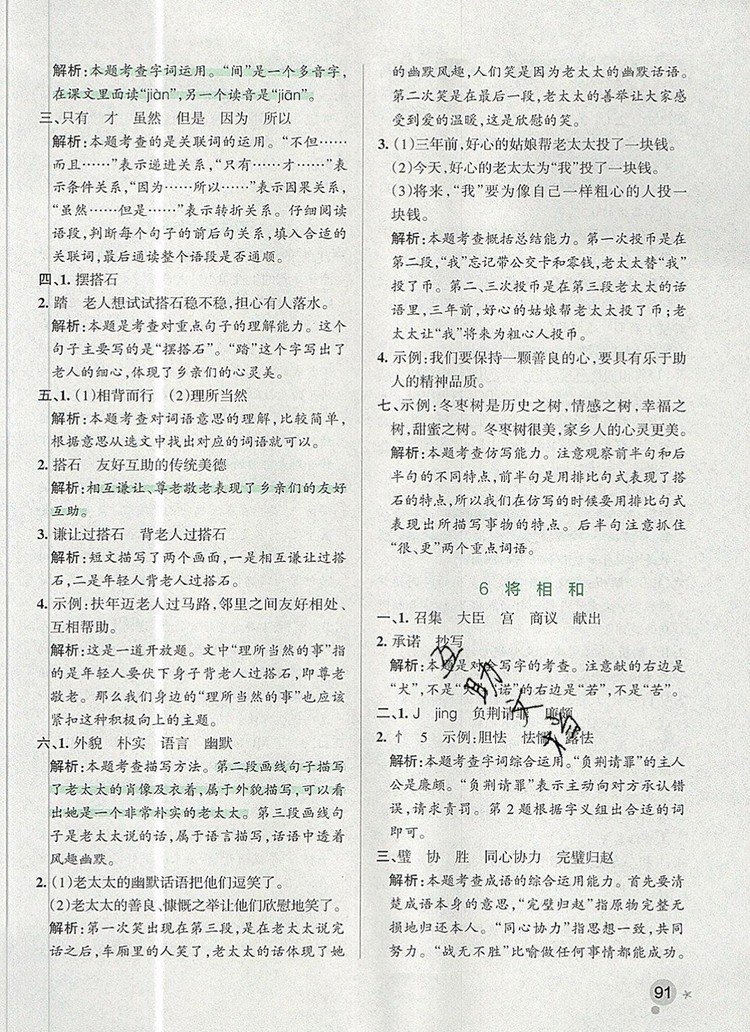 解析:本题考查字词运用。“间”是一个多音字,
在课文里面读“jiàn”,另一个读音是“jiān”。
三、只有 才 虽然 但是 因为 所以
解析:本题考查的是关联词的运用。“不但……
而且……”表示递进关系,“只有……才……”表
示条件关系,“因为……所以……”表示因果关系,
“虽然……但是……”表示转折关系。仔细阅读
语段,判断每个句子的前后句关系,填入合适的
关联词,最后通读整个语段是否通顺。
四、1. 摆搭石
2. 踏 老人想试试搭石稳不稳,担心有人落水。
解析:本题是考查对重点句子的理解能力。这个
句子主要写的是“摆搭石”。“踏”这个字写出了
老人的细心,体现了乡亲们的心灵美。
五、1. (1)相背而行 (2)理所当然
解析:本题考查对词语意思的理解,比较简单,
根据意思从选文中找出对应的词语就可以。
2. 搭石 友好互助的传统美德
解析:相互谦让、尊老敬老表现了乡亲们的友好
互助。
3. 谦让过搭石 背老人过搭石
解析:短文描写了两个画面,一是相互谦让过搭
石,二是年轻人背老人过搭石。
4. 示例:扶年迈老人过马路,邻里之间友好相处、
互相帮助。
解析:这是一道开放题。文中“理所当然的事”指
的是年轻人要伏下身子背老人过搭石,即尊老
敬老。那么我们身边的“理所当然的事”也应该
紧扣这种积极向上的主题。
六、1. 外貌 朴实 语言 幽默
解析:本题考查描写方法。第二段画线句子描写
了老太太的肖像及衣着,属于外貌描写,可以看
出她是一个非常朴实的老太太。第三段画线句
子是老太太说的话,属于语言描写,话语中透着
风趣幽默。
2. (1)老太太的幽默话语把他们逗笑了。
(2)老太太的善良、慷慨之举让他们欣慰地笑了。
解析:第一次笑出现在第三段,是在老太太说完
话之后,车厢里的人笑了,老太太的话体现了她
的幽默风趣,人们笑是因为老太太的幽默话语。
第二次笑是在最后一段,老太太的善举让大家感
受到爱的温暖,这是欣慰的笑。
3. (1)三年前,好心的姑娘帮老太太投了一块钱。
(2)今天,好心的老太太为“我”投了一块钱。
(3)将来,“我”要为像自己一样粗心的人投一
块钱。
解析:本题考查概括总结能力。第一次投币是在
第二段,“我”忘记带公交卡和零钱,老太太替“我”
投了币。第二、三次投币是在第三段老太太的话
语里,三年前,好心的姑娘帮老太太投了币;老
太太让“我”将来为粗心人投币。
4. 示例:我们要保持一颗善良的心,要具有乐于助
人的精神品质。
七、示例:冬枣树是历史之树,情感之树,幸福之
树,甜蜜之树。冬枣树很美,家乡人的心灵更美。
解析:本题考查仿写能力。注意观察前半句和后
半句的不同特点,前半句是用排比句式表现了搭
石的特点,所以我们在仿写的时候要用排比句式
表现出所描写事物的特点。后半句注意抓住
“很、更”两个重点词语。
6 将相和
一、1. 召集 大臣 宫 商议 献出
2. 承诺 抄写
解析:本题是对会写字的考查。注意献的右边是
“犬”,不是“大”“诺”的右边是“若”,不是“苦”。
二、1. J jing 负荆请罪 廉颇
2. 忄 5 示例:胆怯 怯懦 露怯
解析:本题考查字词综合运用。“负荆请罪”的主人
公是廉颇。“负荆请罪”表示主动向对方承认错
误,请求责罚。第2题根据字义组出合适的词
即可。
三、璧 协 胜 同心协力 完璧归赵
解析:本题考查成语的综合运用能力。首先要清
楚成语本身的意思,“完璧归赵”指原物完整无
损地归还本人。“同心协力”指思想一致,共同
努力。“战无不胜”比喻做任何事情都能成功。
互助文档
91